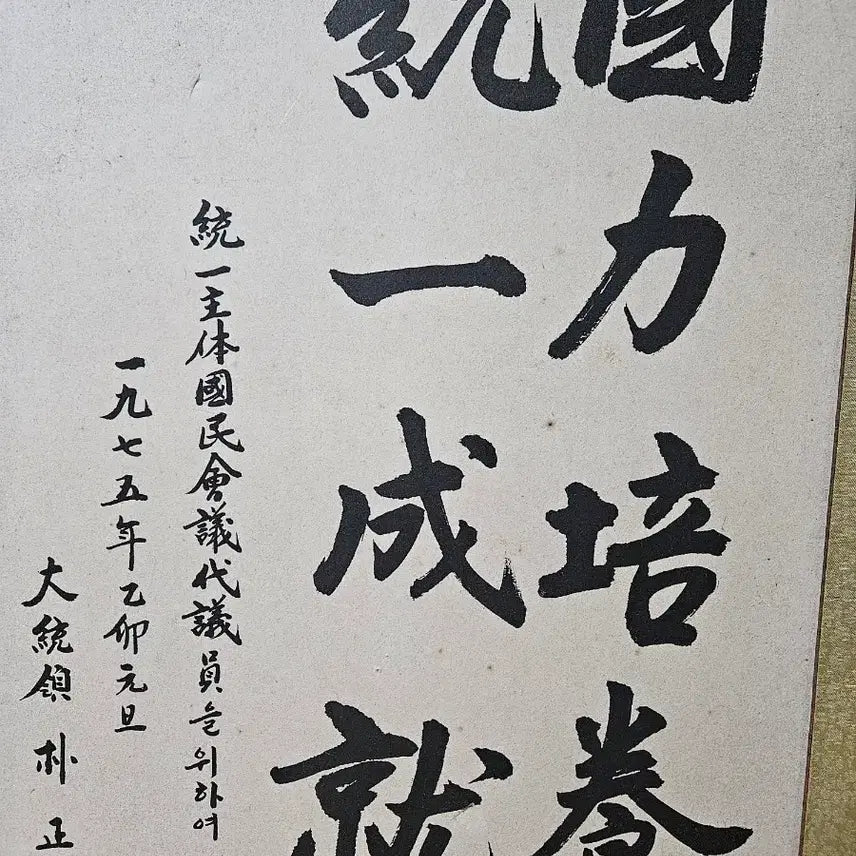 國力培養
統一成就
統一主体國民會議代議員을위하여
一九七五年乙卯元旦
大統領 朴正